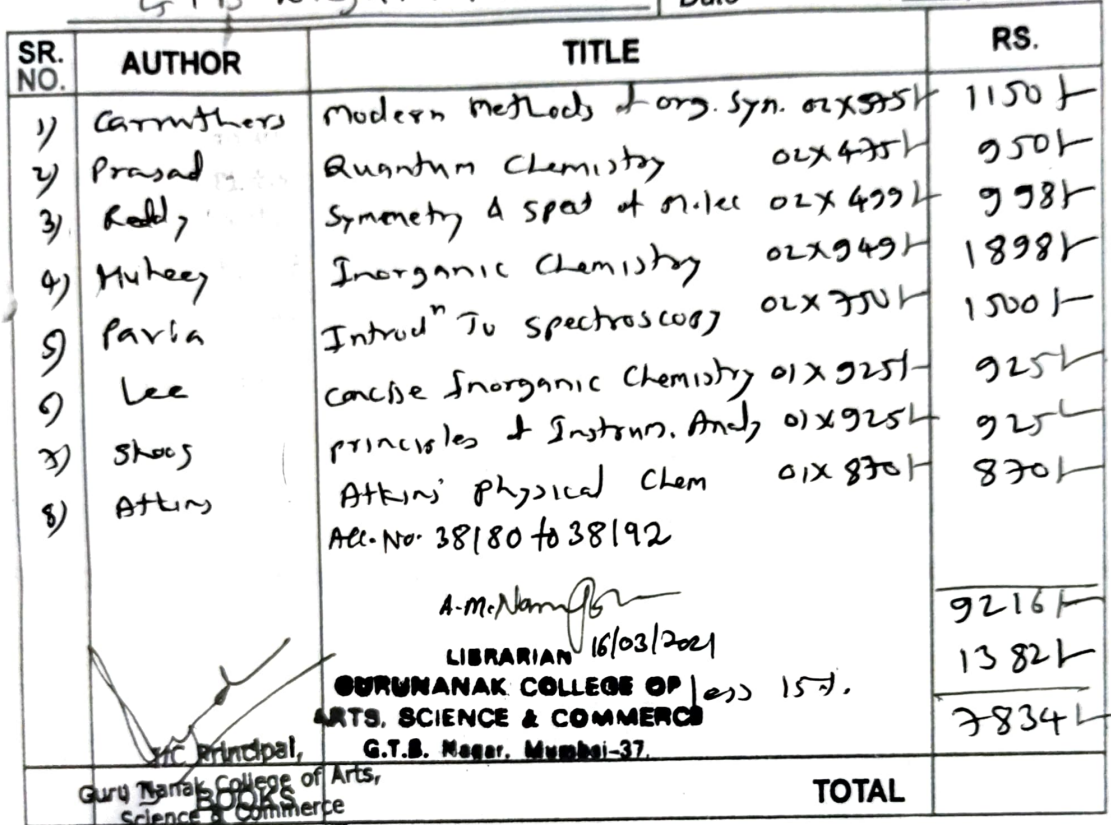 Date
SR. NO. AUTHOR TITLE RS.
1) Carruthers Modern Methods of org. Syn. 02X575/- 1150/-
2) Prasad Quantum Chemistry 02X475/- 950/-
3) Reddy Symmetry & Spect of Molec 02X499/- 998/-
4) Huheey Inorganic Chemistry 02X949/- 1898/-
5) Pavia Introdⁿ To Spectroscopy 02X750/- 1500/-
6) Lee Concise Inorganic Chemistry 01X925/- 925/-
7) Skoog principles of Instrum. Analy 01X925/- 925/-
8) Atkins Atkins' physical Chem 01X870/- 870/-
Acc. No. 38180 to 38192
9216/-
16/03/2021
LIBRARIAN 1382/-
GURUNANAK COLLEGE OF less 15%.
ARTS, SCIENCE & COMMERCE 7834/-
G.T.B. Nagar, Mumbai-37.
I/C Principal,
Guru Nanak College of Arts,
Science & Commerce
BOOKS TOTAL